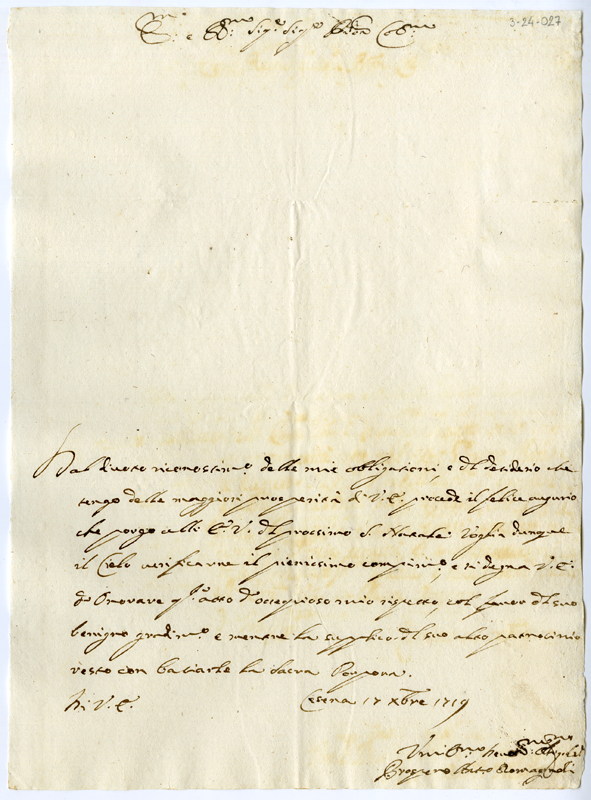 3-24-027
Em.o e R.mo Sig.r Sig.r P.ron Col.mo
Dal divoto riconoscim.o delle mie obligationi, e dl desiderio che
tengo delle maggiori prosperità di V.E. procede il felice augurio
che porgo all' E.V. dl prossimo S. Natale. Voglia dunque
il Cielo verificarne il pienissimo compim.o, e si degna V.E.
d'Onorare q.to atto d'ossequioso mio rispetto col favor dl suo
benigno gradim.o e mentre la supplico dl suo alto patrocinio
resto con baciarle la Sacra Porpora.
Di V.E.
Cesena 17 Xbre 1719
Um.o
Prospero Romagnoli